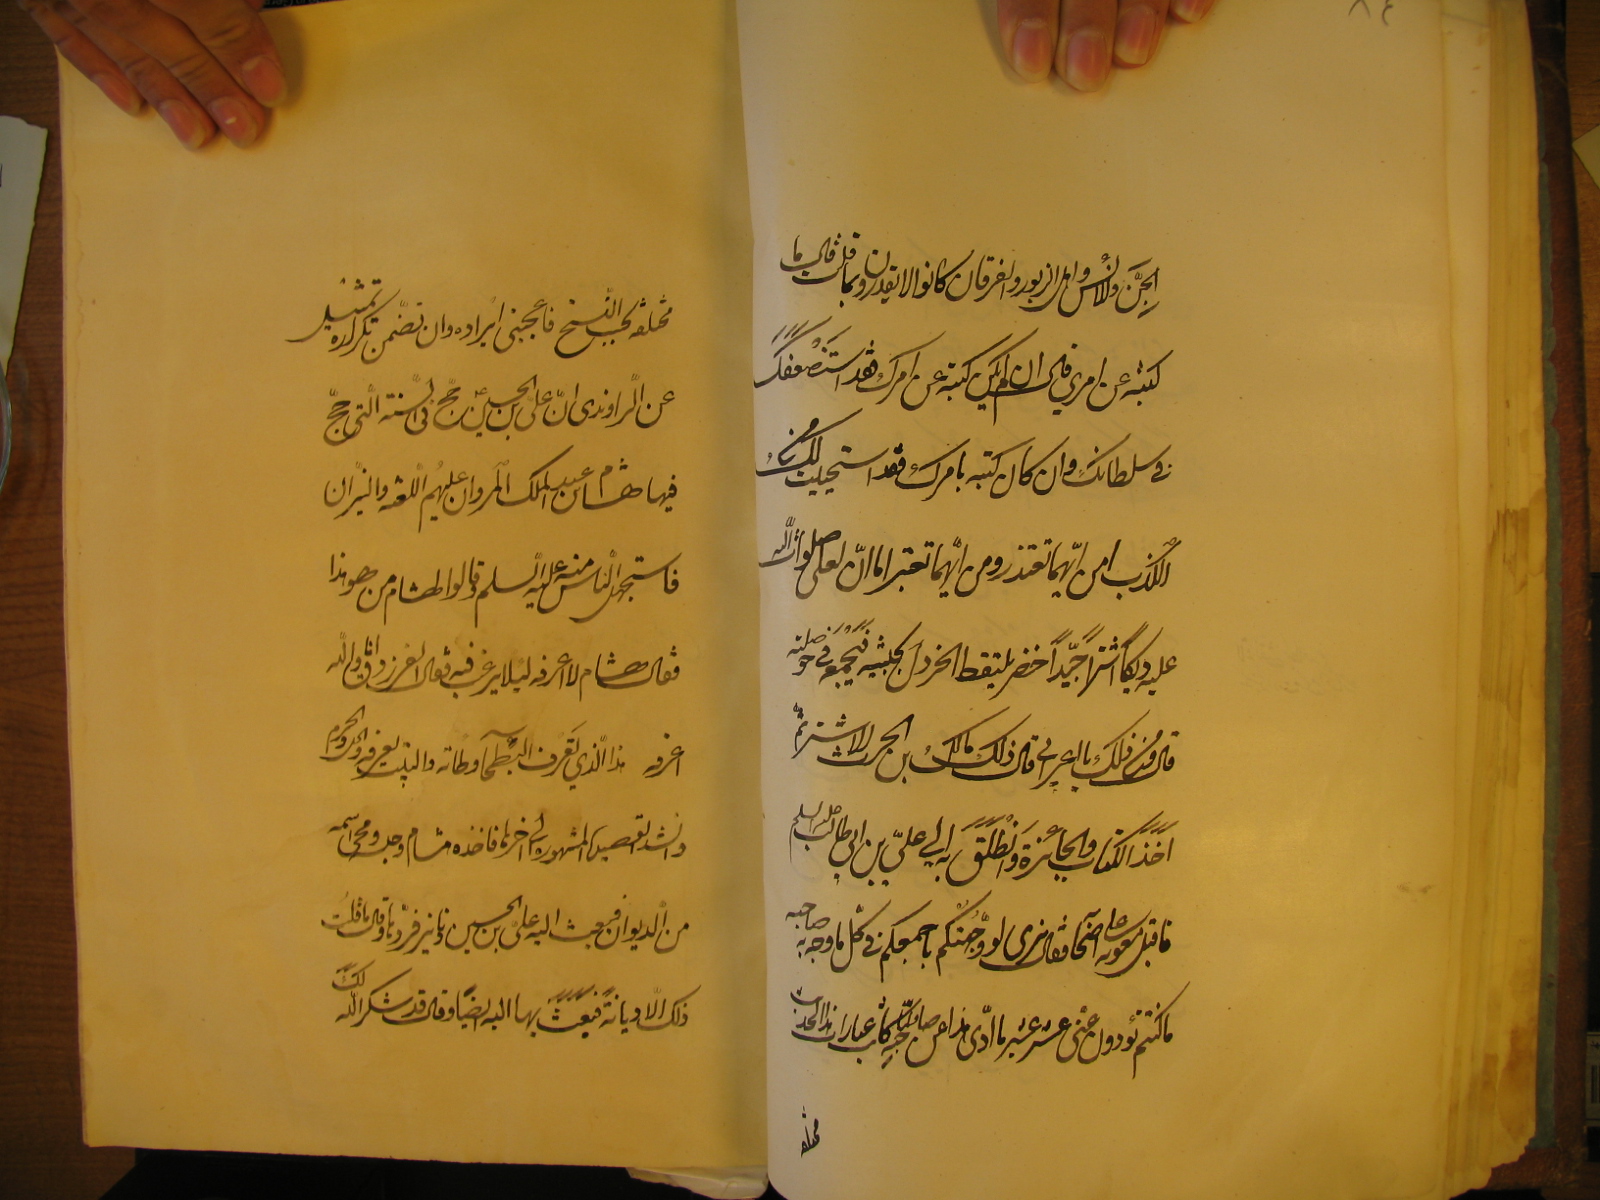 ٨٤
الجنّ والانس واهل الزبور والفرقان كانوا لا يقدرون بما قلت قال ما
كتبته عن امري قال ان لم يكن كتبته عن امرك فقد استضعفك
في سلطانك وان كان كتبه بامرك فقد استحييت لك من
الكذب امن ايّهما تعتذر ومن ايّهما تعتبر اما انّ لعلي صلوات الله
عليه ديكا اشتر جيّدا اخضر يلتقط الخردل لجيشه فيجمعه في حوصلته
قال ومن ذلك يا اعرابي قال ذلك مالك بن الحرث الاشتر ثم
اخذ الكتاب والجائزة وانطلق به الى علي بن ابي طالب عليه السلم
فاقبل معوية على اصحابه فقال نرى لو وجّهتكم باجمعكم في كل ما وجّه به صاحبه
ما كنتم تؤدون عنّي عشر عشير ما ادّى هذا عن صاحبه عبارات هذا الحديث
مختلفة
مختلفة بحسب النسخ فاعجبني ايراده وان تضمن تكراره تمثيل
عن الراوندى انّ علىّ بن الحسين ع حجّ في السنة الّتي حجّ
فيها هشام بن عبد الملك المروان عليهم اللعنة والنيران
فاستجهل الناس منه عليه السلم وقالوا لهشام من هو هذا
فقال هشام لا اعرفه ليلا يرغب فيه فقال الفرزدق وانّي والله
اعرفه هذا الّذي تعرف البطحآ وطاته والبيت يعرفه والحلّ والحرم
وانشد القصيدة المشهورة الى اخرها فاخذه هشام وحبسه ومحى اسمه
من الديوان فبعث اليه علىّ بن الحسين دنانير فردّها وقال ما قلت
ذلك الّا ديانة فبعث بها اليه ايضا وقال قد شكر الله لك